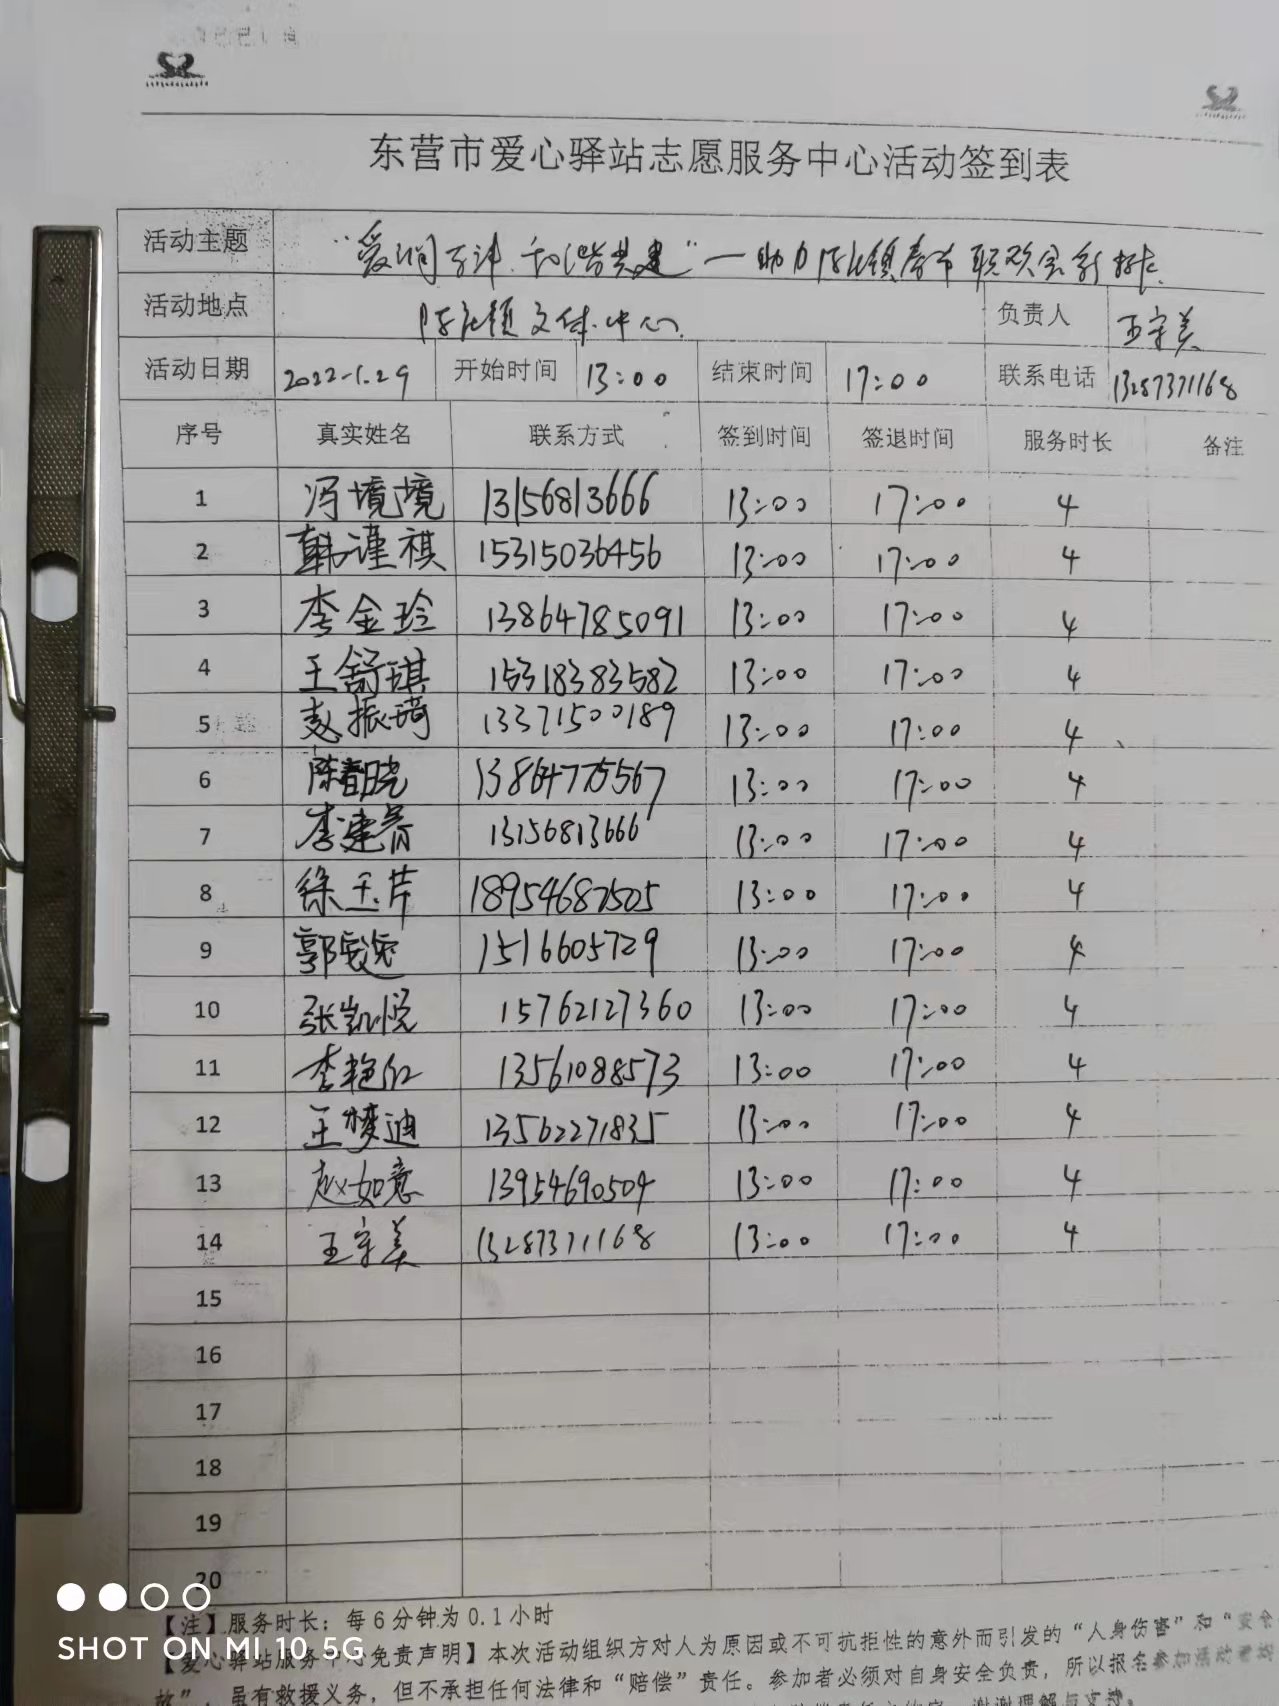 东营市爱心驿站志愿服务中心活动签到表
活动主题 “爱润万沣 和谐共建”—助力陈庄镇春节联欢会彩排
活动地点 陈庄镇文体中心 负责人 王守美
活动日期 2022-1.29 开始时间 13:00 结束时间 17:00 联系电话 13287371168
序号 真实姓名 联系方式 签到时间 签退时间 服务时长 备注
1 冯境境 13156813666 13:00 17:00 4
2 韩谨祺 15315036456 13:00 17:00 4
3 李金玲 13864785091 13:00 17:00 4
4 王舒琪 15318383582 13:00 17:00 4
5 赵振琦 13371500189 13:00 17:00 4
6 陈春晓 13864775567 13:00 17:00 4
7 李建芳 13156813666 13:00 17:00 4
8 徐玉芹 18954687505 13:00 17:00 4
9 郭 1516605729 13:00 17:00 4
10 张凯悦 15762127360 13:00 17:00 4
11 李艳红 13561088573 13:00 17:00 4
12 王梦迪 13562271835 13:00 17:00 4
13 赵如意 13954690504 13:00 17:00 4
14 王守美 13287371168 13:00 17:00 4
15
16
17
18
19
20
【注】服务时长：每6分钟为0.1小时
【爱心驿站服务中心免责声明】本次活动组织方对人为原因或不可抗拒性的意外而引发的“人身伤害”和“安全
故”，虽有救援义务，但不承担任何法律和“赔偿”责任。参加者必须对自身安全负责，所以报名参加活动者均
谢谢理解与支持。
SHOT ON MI 10 5G